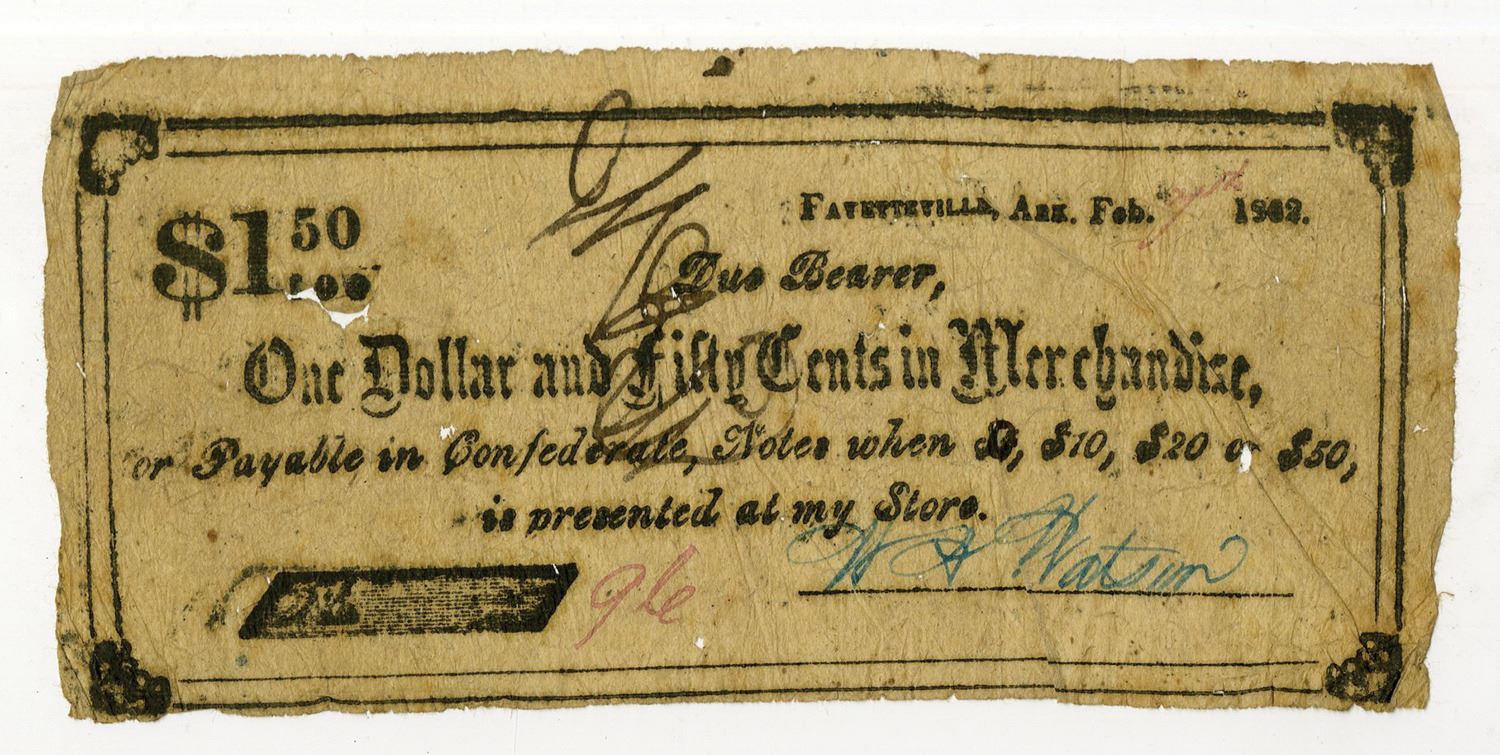 Fayetteville, Ark. Feb. 1862.
$1.50
Due Bearer,
One Dollar and Fifty Cents in Merchandize,
or Payable in Confederate, Notes when $5, $10, $20 or $50,
is presented at my Store.
No. 96
W A Watson